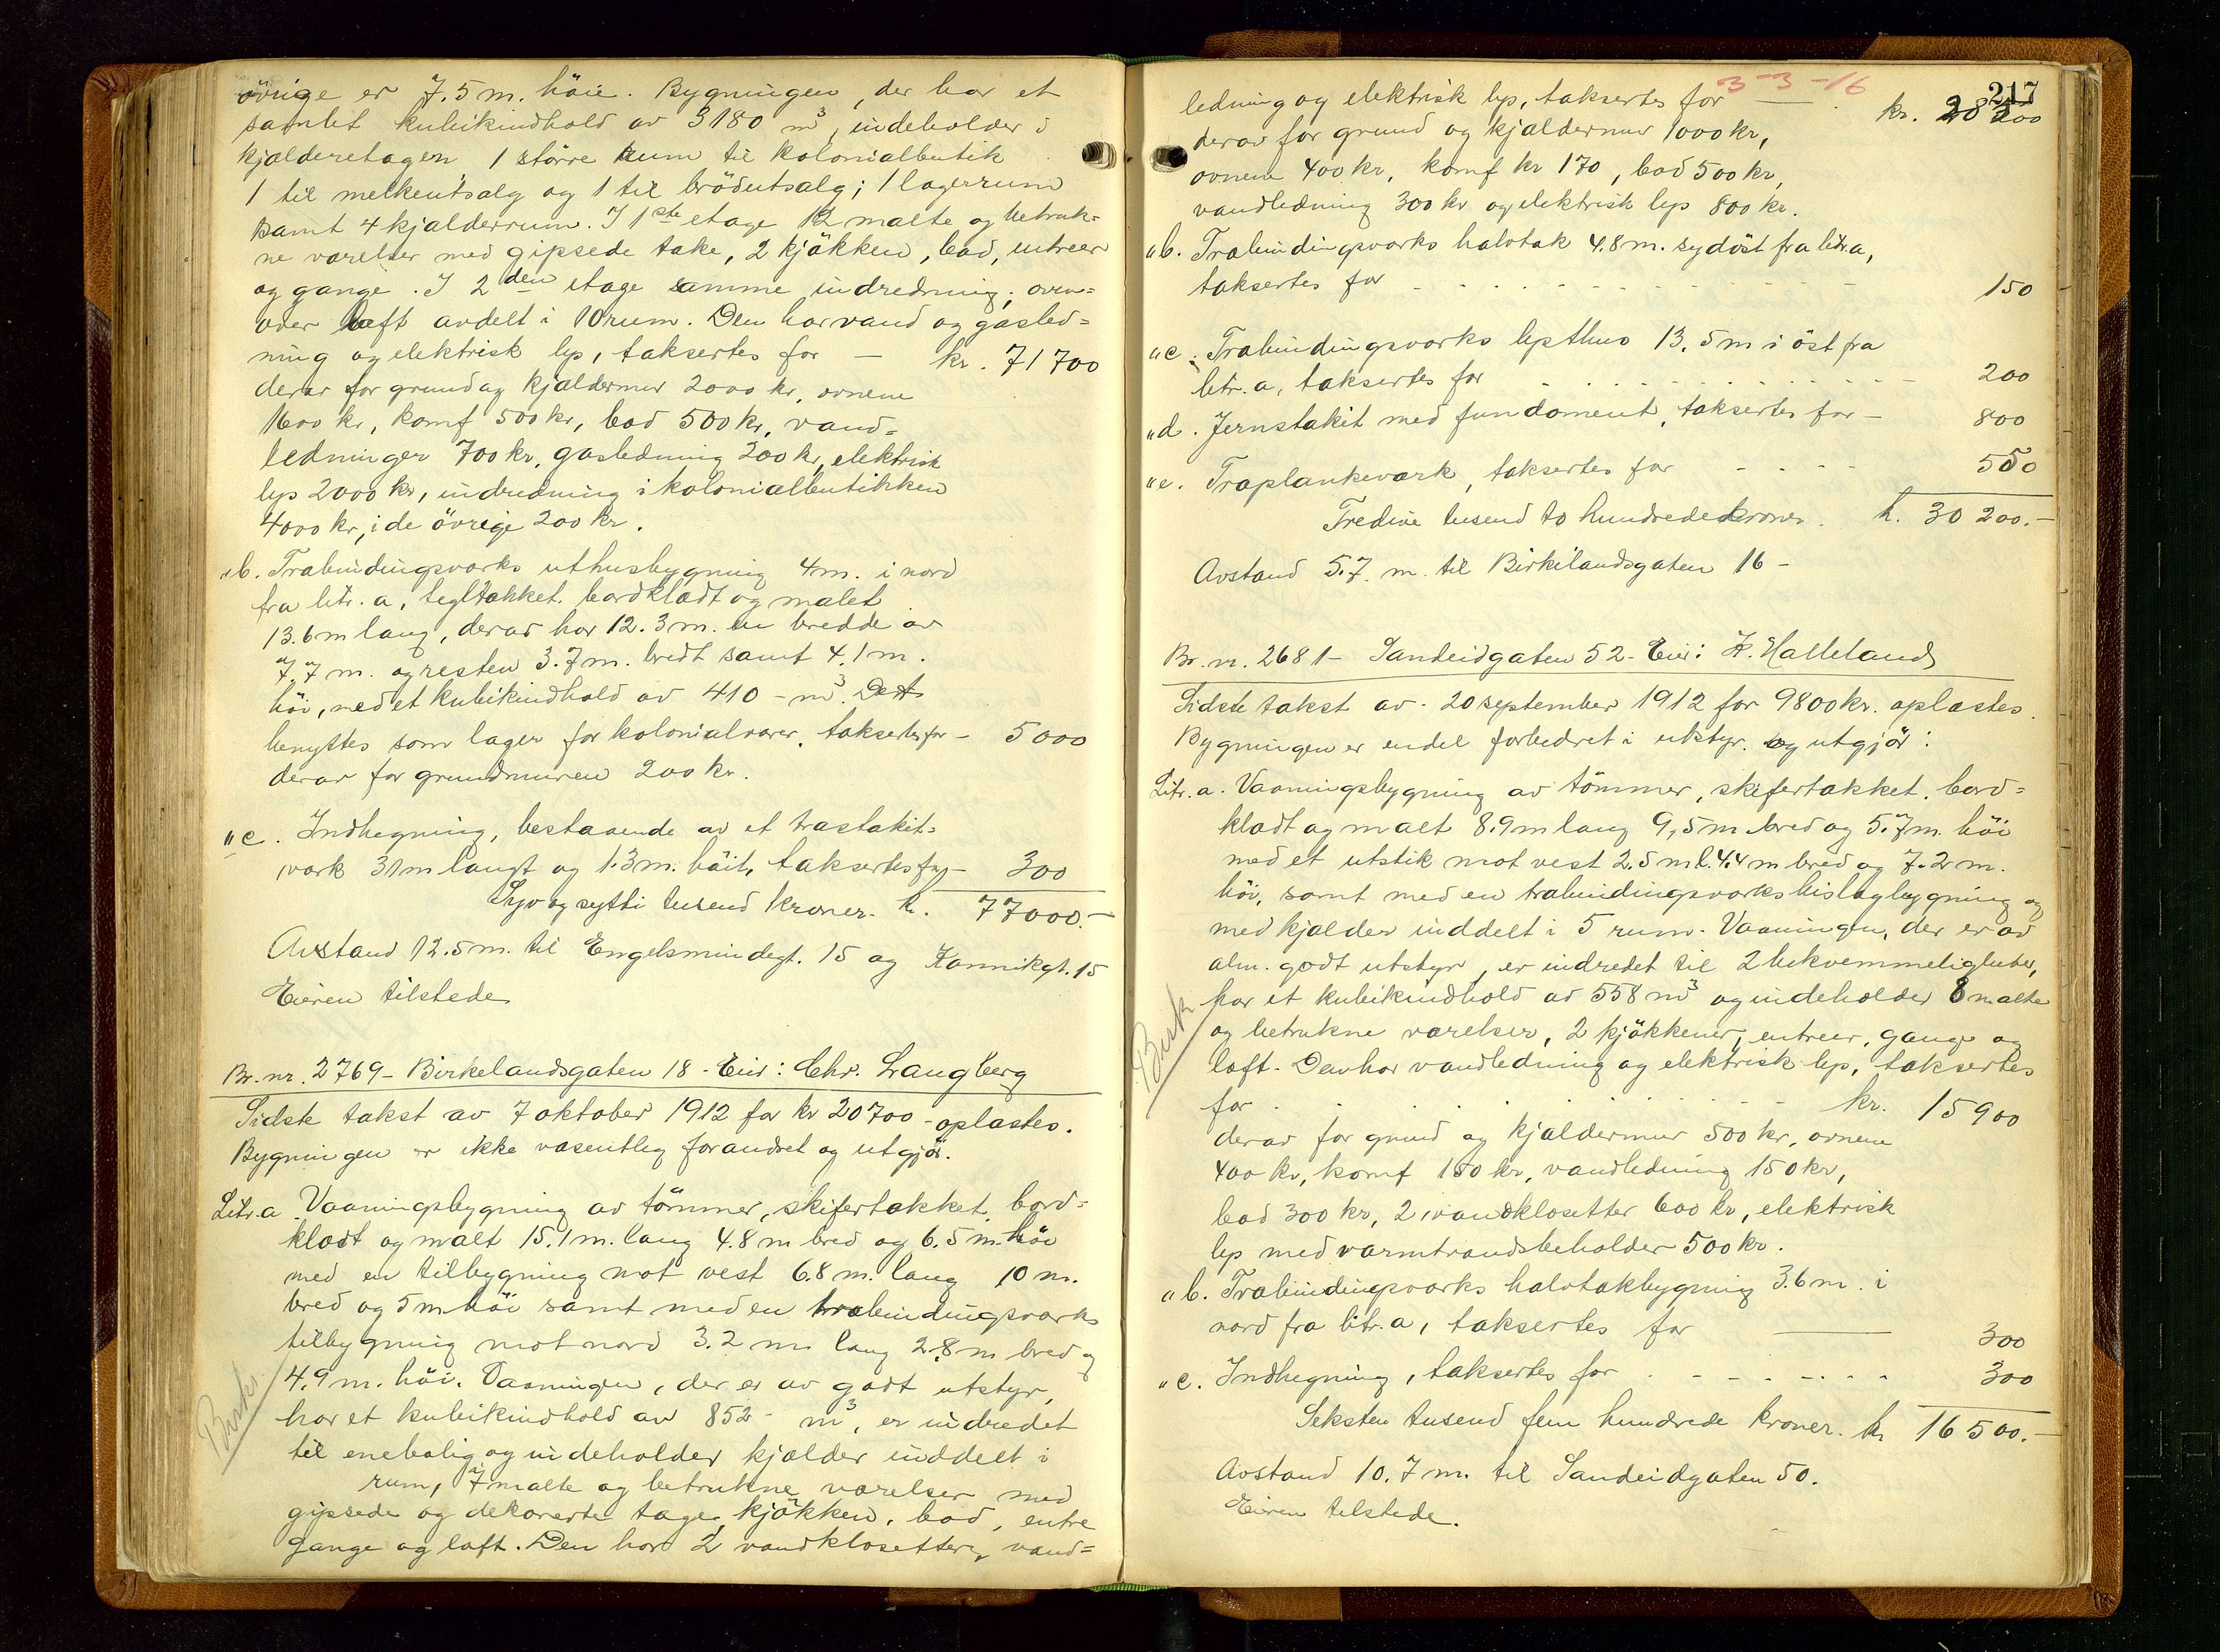 övrige er 7.5 m. höie. Bygningen, der har et
samlet kubikindhold av 3180 m³, indeholder i
kjælderetagen 1 större rum til kolonialbutik
1 til melkeutsalg og 1 til brödutsalg; 1 lagerrum
samt 4 kjælderrum. I 1ste etage 12 malte og betruk=
ne værelser med gipsede take, 2 kjökken, bad, entreer
og gange. I 2den etage samme indredning; oven=
over loft avdelt i 10 rum. Den har vand og gasled=
ning og elektrisk lys, taksertes for — kr. 71700
derav for grund og kjældermur 2000 kr, ovnene
1600 kr, komf 500 kr, bad 500 kr, vand=
ledninger 700 kr, gasledning 200 kr, elektrisk
lys 2000 kr, indredning i kolonialbutikken
4000 kr, i de övrige 200 kr.
"b. Træbindingsværks uthusbygning 4 m. i nord
fra litr. a, tegltækket. bordklædt og malet
13.6 m lang, derav har 12.3 m. en bredde av
7.7 m. og resten 3.7 m. bredt samt 4.1 m.
höi, med et kubikindhold av 410 - m³. Det
benyttes som lager for kolonialvarer, taksertes for - 5000
derav for grundmuren 200 kr.
"c. Indhegning, bestaaende av et træstakit=
værk 31 m langt og 1.3 m. höit, taksertes for - 300
Syv og sytti tusend kroner. kr. 77000.-
Avstand 12.5 m. til Engelsmindegt. 15 og Kannikgt. 15
Eieren tilstede
Br. nr. 2769 - Birkelandsgaten 18 - Eier: Chr. Langberg
Sidste takst av 7 oktober 1912 for kr 20700 - oplæstes.
Bygningen er ikke væsentlig forandret og utgjör.
Litr. a Vaaningsbygning av tömmer, skifertækket, bord=
klædt og malt 15.1 m. lang 4.8 m bred og 6.5 m. höi
med en tilbygning mot vest 6.8 m. lang 10 m.
bred og 5 m höi samt med en træbindingsværks
tilbygning mot nord 3.2 m lang 2.8 m bred og
4.9 m. höi. Vaaningen, der er av godt utstyr,
har et kubikindhold av 852 - m³, er indredet
til enebolig og indeholder kjælder inddelt i
rum, 7 malte og betrukne værelser med
gipsede og dekorerte tage, kjökken, bad, entre
gange og loft. Den har 2 vandklosetter, vand=
217
3-3-16
ledning og elektrisk lys, taksertes for — kr. 28500
derav for grund og kjældermur 1000 kr,
ovnene 400 kr, komf kr 170, bad 500 kr,
vandledning 300 kr og elektrisk lys 800 kr.
"b. Træbindingsværks halvtak 4.8 m. sydöst fra litr. a,
taksertes for - - - 150
"c. Træbindingsværks lysthus 13.5 m i öst fra
litr. a, taksertes for - - - 200
"d. Jernstakit med fundament, taksertes for - 800
"e. Træplankeværk, taksertes for - - - 550
Tredive tusend to hundrede kroner. kr. 30200.-
Avstand 5.7 m. til Birkelandsgaten 16 -
Br. nr. 2681 - Sandeidgaten 52 - Eier: K. Halleland
Sidste takst av 20 september 1912 for 9800 kr. oplæstes.
Bygningen er endel forbedret i utstyr, og utgjör:
Litr. a. Vaaningsbygning av tömmer, skifertækket, bord=
klædt og malt 8.9 m lang 9,5 m bred og 5.7 m. höi
med et utstik mot vest 2.5 m l. 4.4 m bred og 7.2 m.
höi, samt med en træbindingsværks bislagbygning og
med kjælder inddelt i 5 rum. Vaaningen, der er av
alm. godt utstyr, er indredet til 2 bekvemmeligheter,
har et kubikindhold av 558 m³ og indeholder 8 malte
og betrukne værelser, 2 kjökkener, entreer, gange og
loft. Den har vandledning og elektrisk lys, taksertes
for - - - kr. 15900
derav for grund og kjældermur 500 kr, ovnene
400 kr, komf 150 kr, vandledning 150 kr,
bad 300 kr, 2 vandklosetter 600 kr, elektrisk
lys med varmtvandsbeholder 500 kr.
"b. Træbindingsværks halvtakbygning 3.6 m. i
nord fra litr. a, taksertes for — 300
"c. Indhegning, taksertes for - - - 300
Seksten tusend fem hundrede kroner. kr 16500.-
Avstand 10.7 m. til Sandeidgaten 50.
Eieren tilstede.